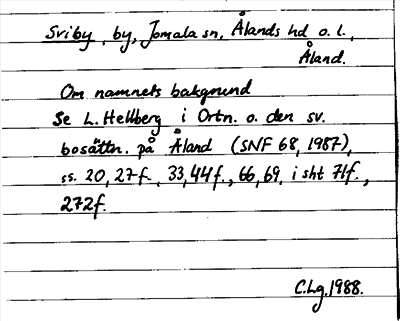 Sviby, by, Jomala sn, Ålands hd o. l.,
Åland.
Om namnets bakgrund
Se L. Hellberg i Ortn. o. den sv.
bosättn. på Åland (SNF 68, 1987),
ss. 20, 27f., 33, 44f., 66, 69, i sht 71f.,
272f.
C.Lg. 1988.